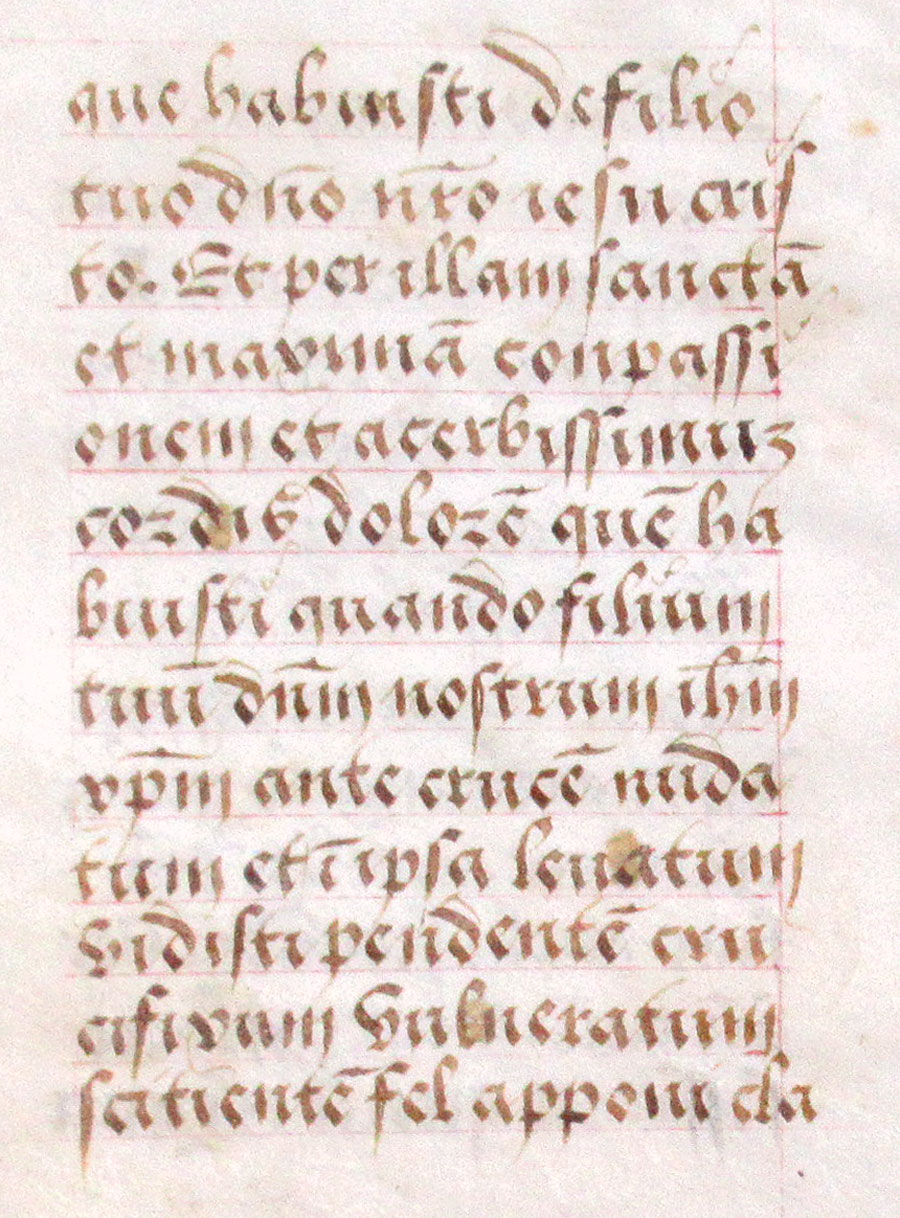 que habuisti de filio
tuo dño nr̃o iesu cris
to. Et per illam sanctā
et maximā conpassi
onem et acerbissimuz
cordis dolorē quē ha
buisti quando filium
tuū dñm nostrum ihm̃
xp̄m ante crucē nuda
tum et ī ipsa leuatum
vidisti pendentē cru
cifixum vulneratum
scitientē fel apponi cla